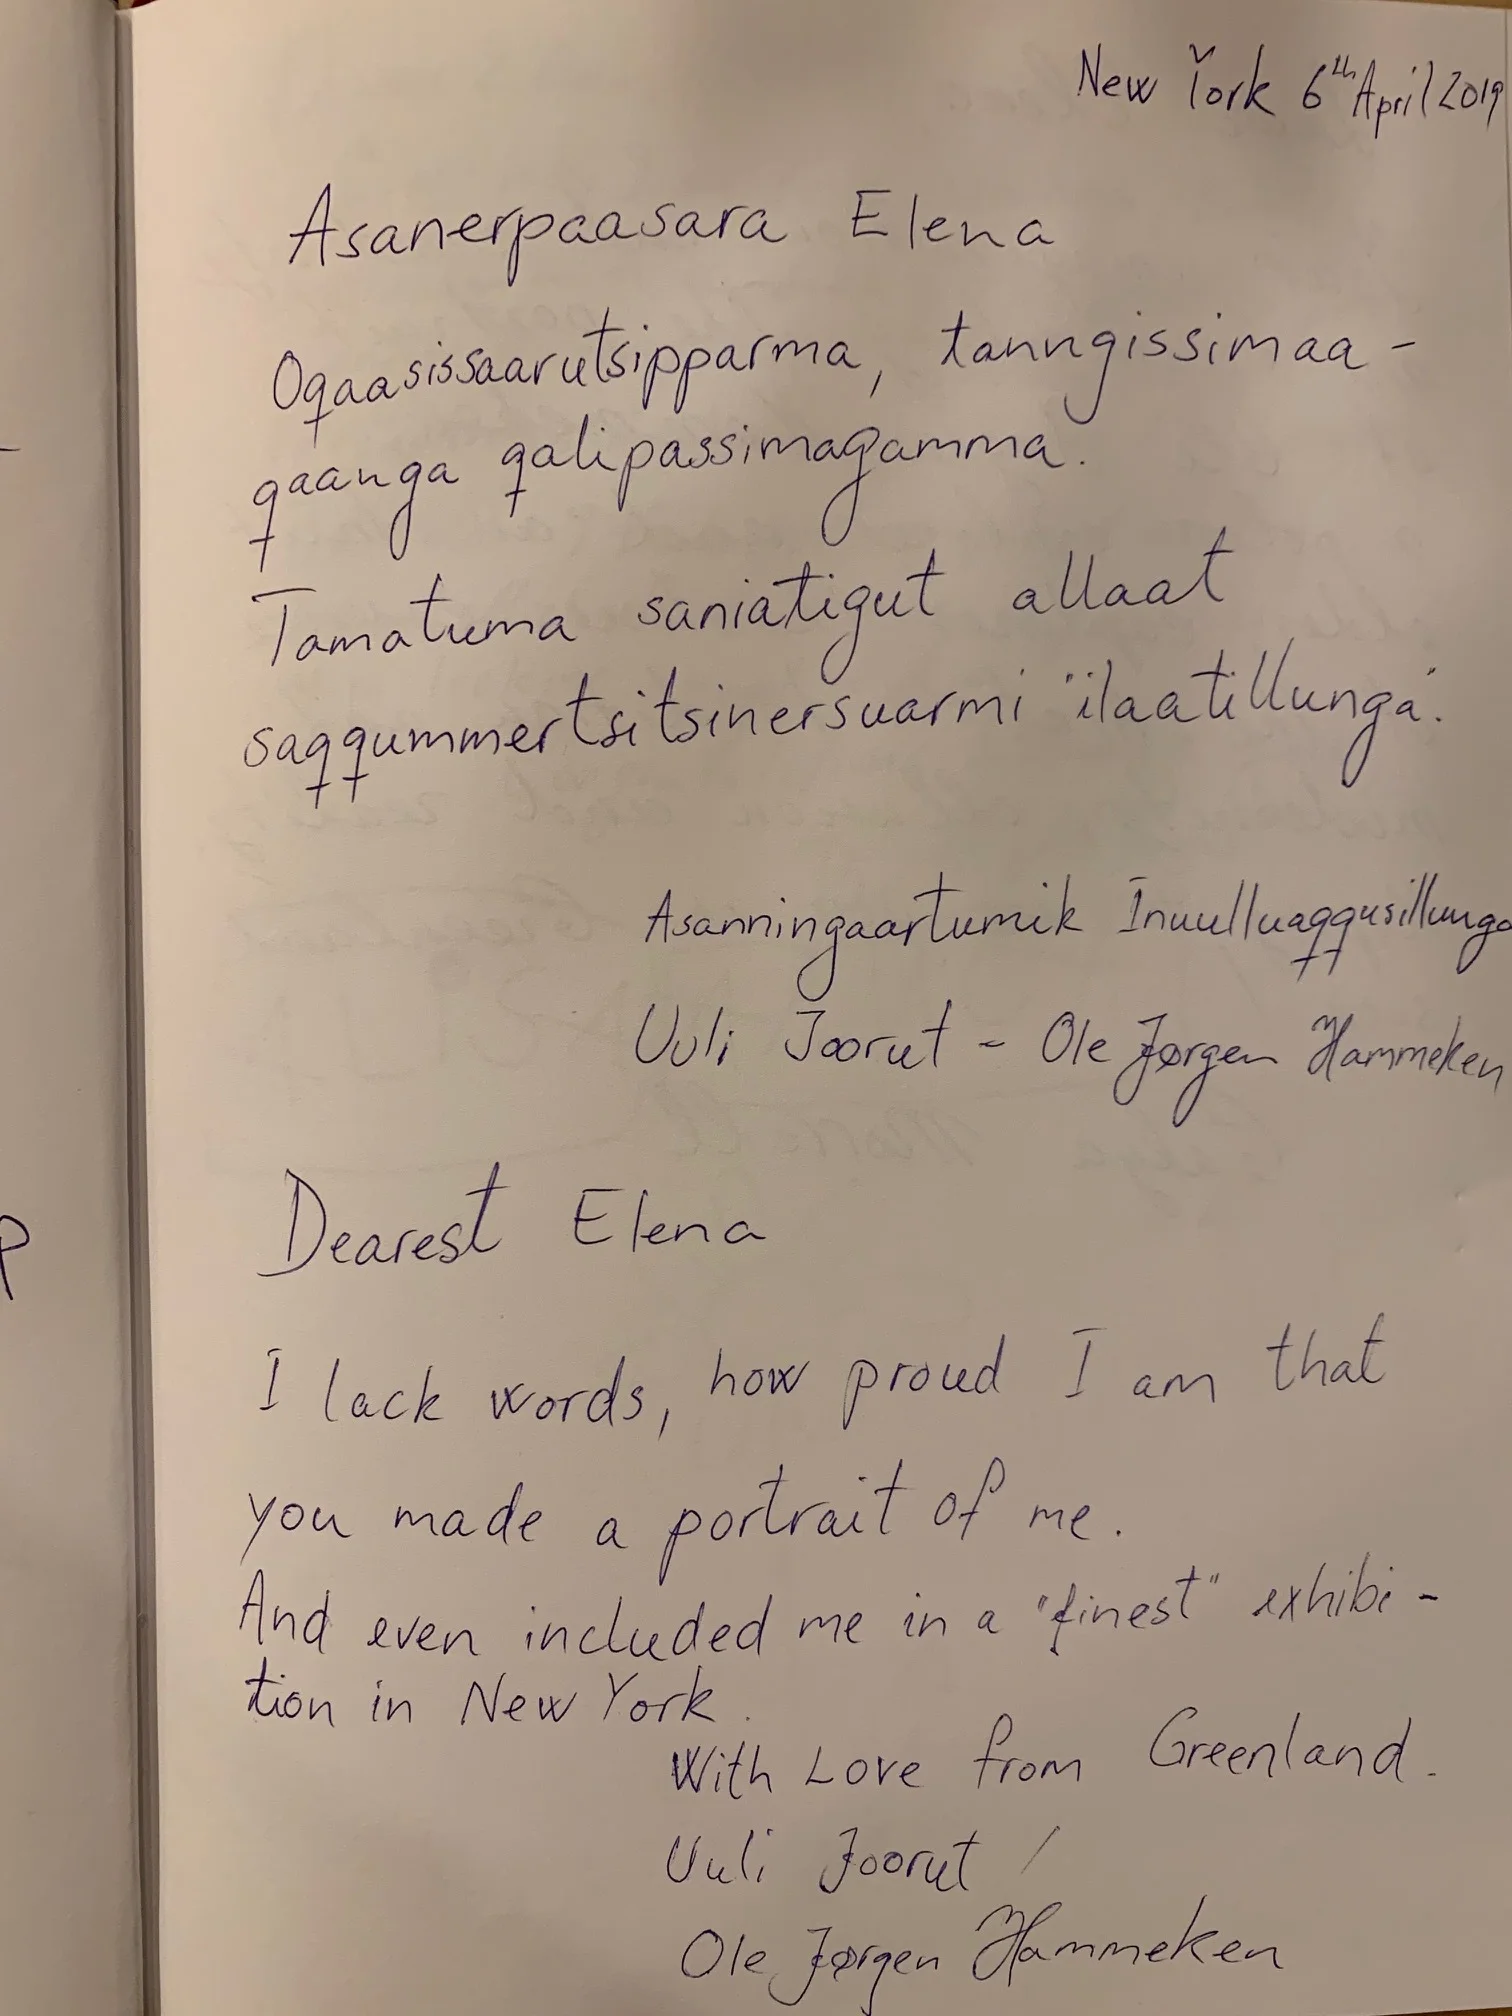 New York 6th April 2019
Asanerpaasara Elena
Oqaasissaarutsipparma, tanngissimaa-
qaanga qalipassimagamma.
Tamatuma saniatigut allaat
saqqummertsitsinersuarmi "ilaatillunga".
Asanningaartumik Inuulluaqqusillunga
Uuli Joorut - Ole Jørgen Hammeken
Dearest Elena
I lack words, how proud I am that
you made a portrait of me.
And even included me in a "finest" exhibi-
tion in New York.
With Love from Greenland.
Uuli Joorut /
Ole Jørgen Hammeken